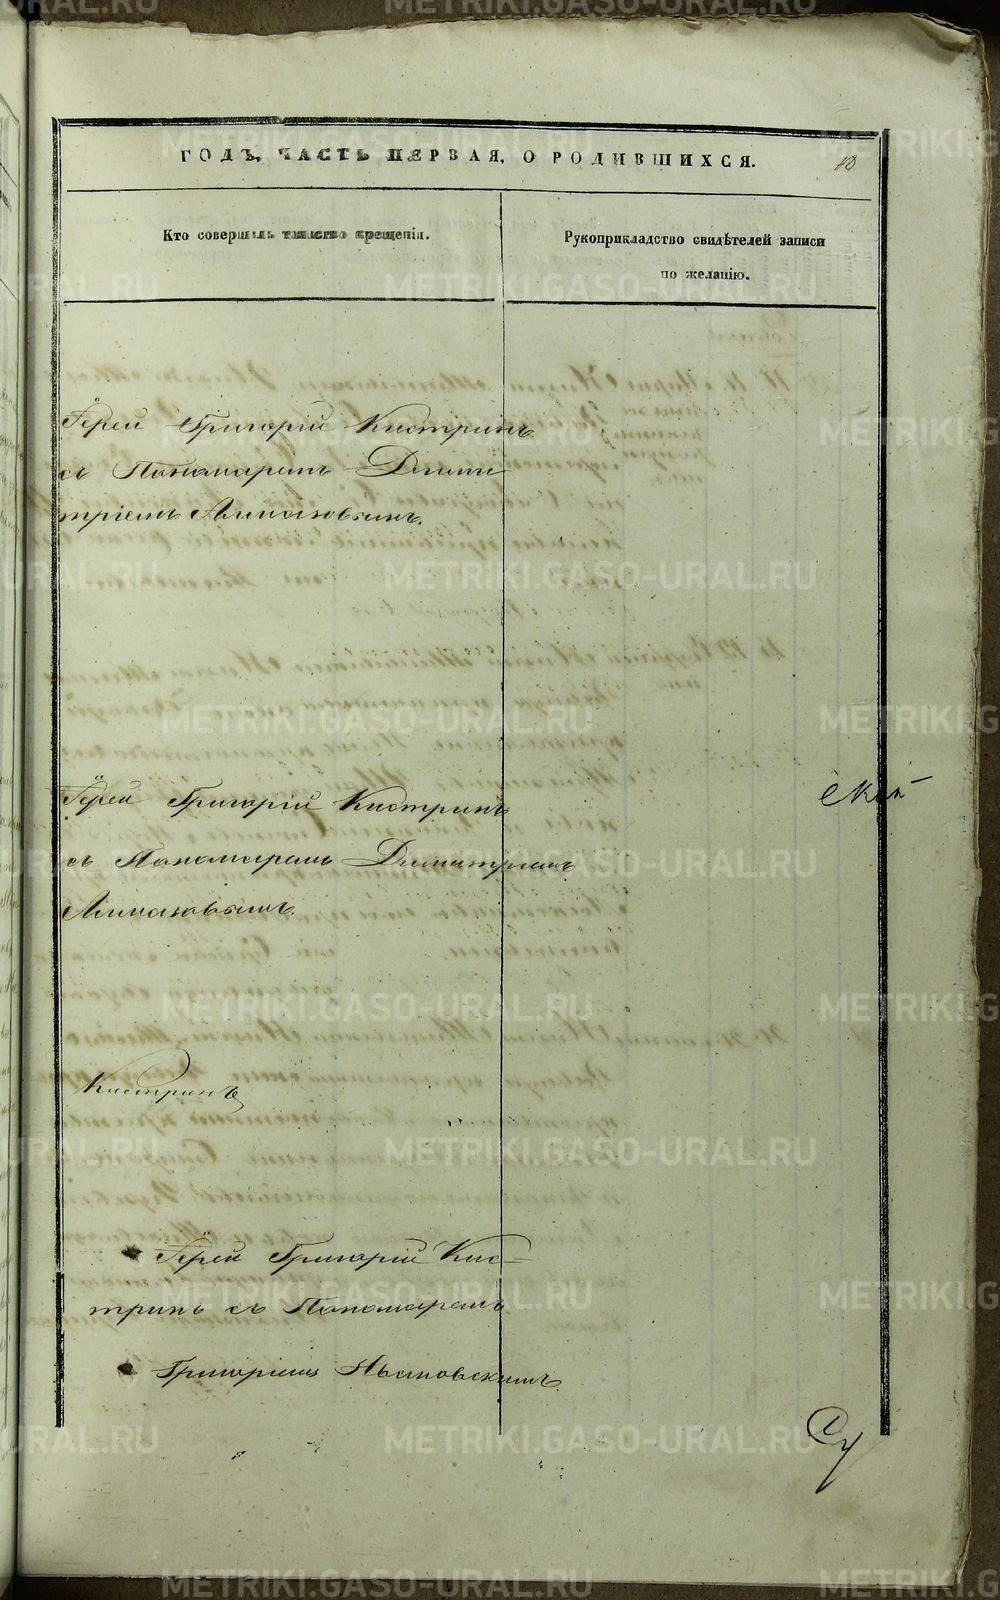 ГОДЪ, ЧАСТЬ ПЕРВАЯ, О РОДИВШИХСЯ.
Кто совершалъ таинство крещенія.
Рукоприкладство свидѣтелей записи
по желанію.
Іерей Григорій Кистринъ
съ Пономаремъ Дими
тріемъ Алмазовымъ.
Іерей Григорій Кистринъ
съ Пономаремъ Димитріемъ
Алмазовымъ.
Кистринъ
Іерей Григорій Кис-
тринъ съ Пономаремъ
Григоріемъ
METRIKI.GASO-URAL.RU